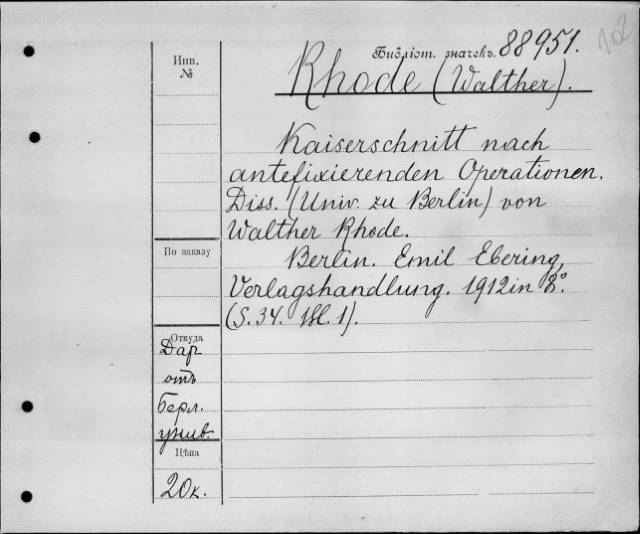 102
Библіот. значекъ. 88951.
Инв.
№
Rhode (Walther).
Kaiserschnitt nach
antefixierenden Operationen.
Diss. (Univ. zu Berlin) von
Walther Rhode.
По заказу
Berlin. Emil Ebering,
Verlagshandlung. 1912 in 8º.
(S. 34. Bl. 1).
Откуда
Дар
отъ
Берл.
унив.
Цѣна
20к.